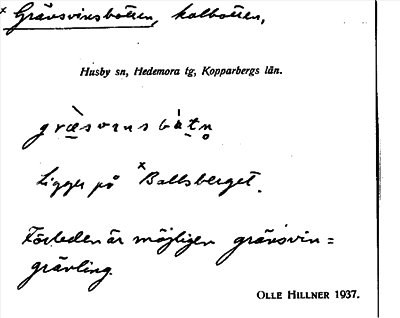 × Grävsvinsbotten, kolbotten,
Husby sn, Hedemora tg, Kopparbergs län.
græ̀svɩnsbátn̥
Ligger på × Ballsberget.
Förleden är möjligen grävsvin=
grävling.
OLLE HILLNER 1937.